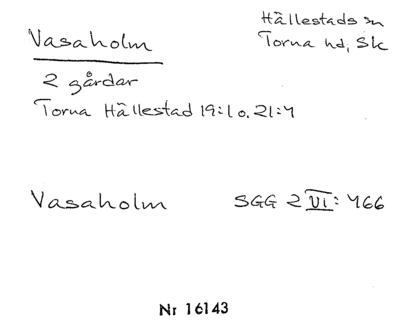 Vasaholm
Hällestads sn
Torna hd, Sk
2 gårdar
Torna Hällestad 19:1 o. 21:4
Vasaholm SGG 2 VI: 466
Nr 16143